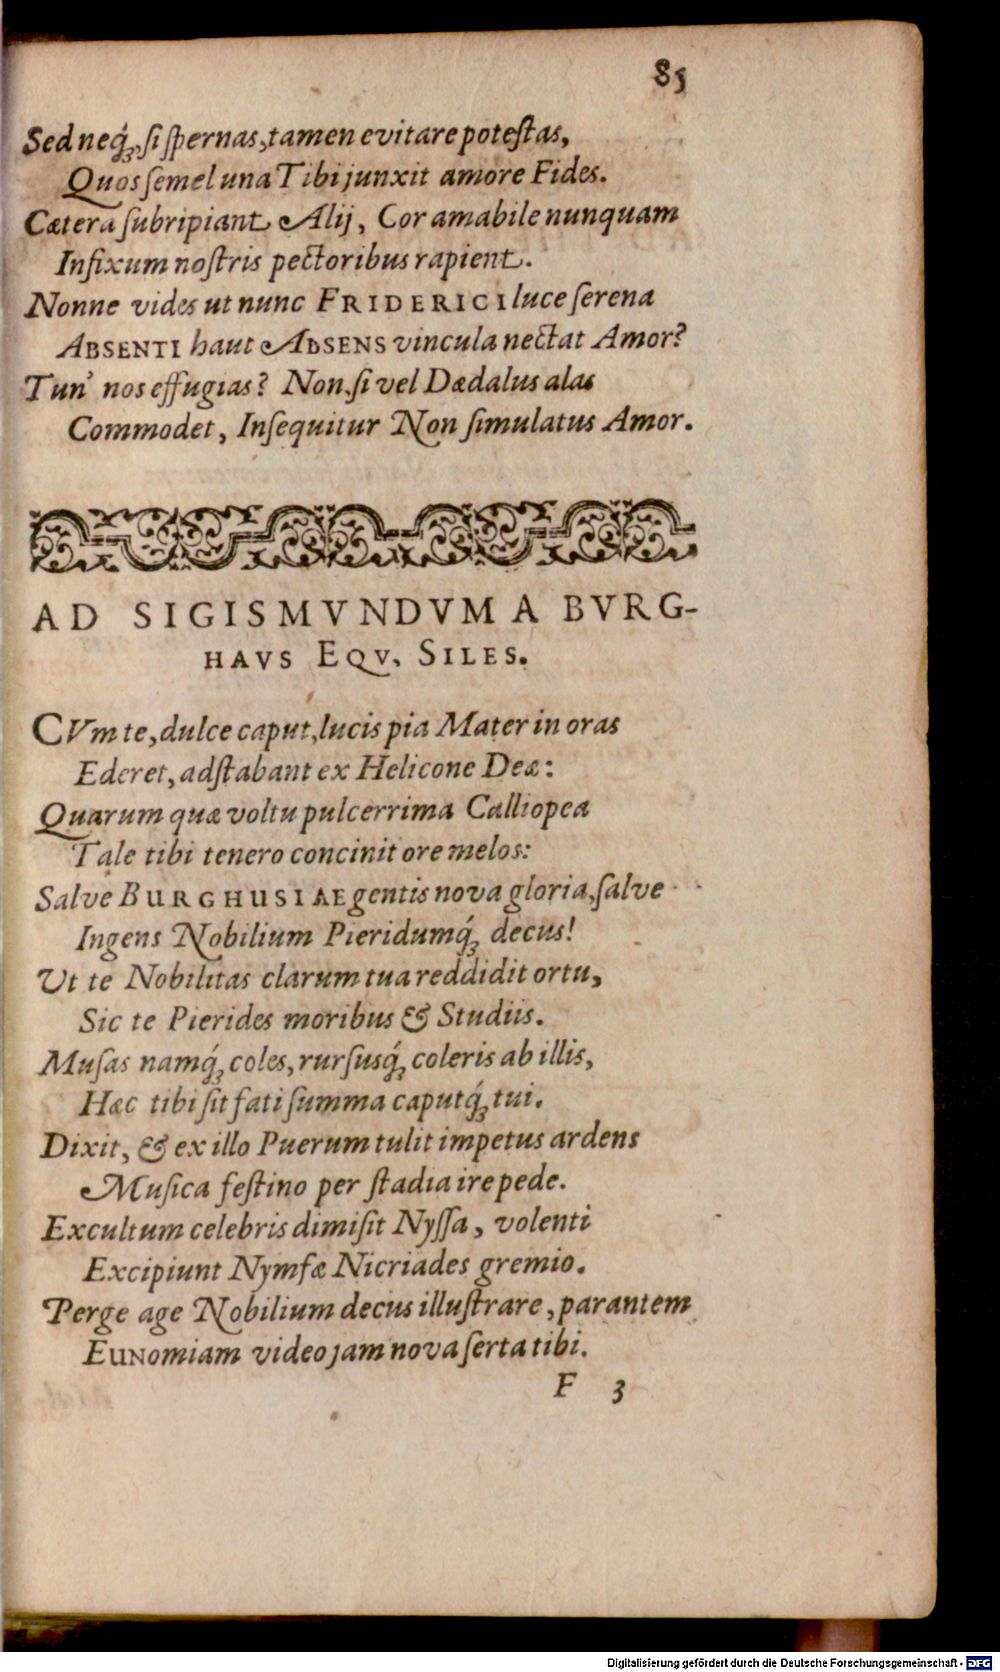 85
Sed neq́;, si spernas, tamen evitare potestas,
Quos semel una Tibi junxit amore Fides.
Cætera subripiant Alij, Cor amabile nunquam
Infixum nostris pectoribus rapient.
Nonne vides ut nunc FRIDERICI luce serena
ABSENTI haut ABSENS vincula nectat Amor?
Tun' nos effugias? Non, si vel Dædalus alas
Commodet, Insequitur Non simulatus Amor.
AD SIGISMVNDVM A BVRG-
HAVS EQV. SILES.
CVm te, dulce caput, lucis pia Mater in oras
Ederet, adstabant ex Helicone Deæ:
Quarum quæ voltu pulcerrima Calliopea
Tale tibi tenero concinit ore melos:
Salve BURGHUSIAE gentis nova gloria, salve
Ingens Nobilium Pieridumq́; decus!
Ut te Nobilitas clarum tua reddidit ortu,
Sic te Pierides moribus & Studiis.
Musas namq́; coles, rursusq́; coleris ab illis,
Hæc tibi sit fati summa caputq́; tui.
Dixit, & ex illo Puerum tulit impetus ardens
Musica festino per stadia ire pede.
Excultum celebris dimisit Nyssa, volenti
Excipiunt Nymfæ Nicriades gremio.
Perge age Nobilium decus illustrare, parantem
EUNomiam video jam nova serta tibi.
F 3
Digitalisierung gefördert durch die Deutsche Forschungsgemeinschaft - DFG